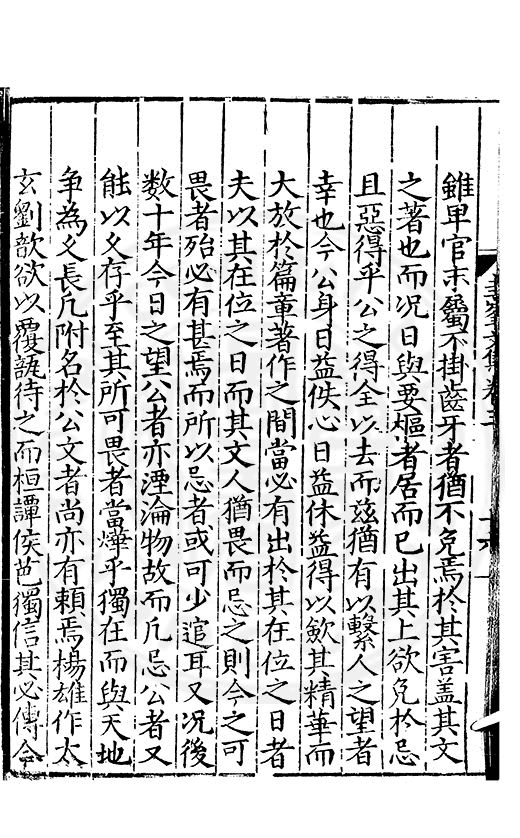 雖卑官末屬不掛齒牙者猶不免焉於其害盖其文
之著也而况日與要樞者居而已出其上欲免於忌
且惡得乎公之得全以去而兹猶有以繫人之望者
幸也今公身日益佚心日益休益得以歛其精華而
大放於篇章著作之間當必有出於其在位之日者
夫以其在位之日而其文人猶畏而忌之則今之可
畏者殆必有甚焉而所以忌者或可少逭耳又况後
数十年今日之望公者亦湮淪物故而凢忌公者又
能以文存乎至其所可畏者當燁乎獨在而與天地
争為久長凢附名於公文者尚亦有賴焉楊雄作太
玄劉歆欲以覆瓿待之而桓譚侯芭獨信其必傳今